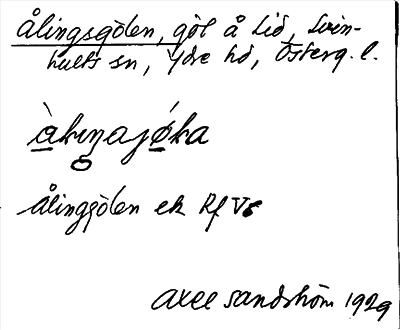 Ålingsgölen, göl å Lid, Svin-
hults sn, Ydre hd, Österg. l.
Ålinggölen ek Rf V6
Axel Sandström 1929